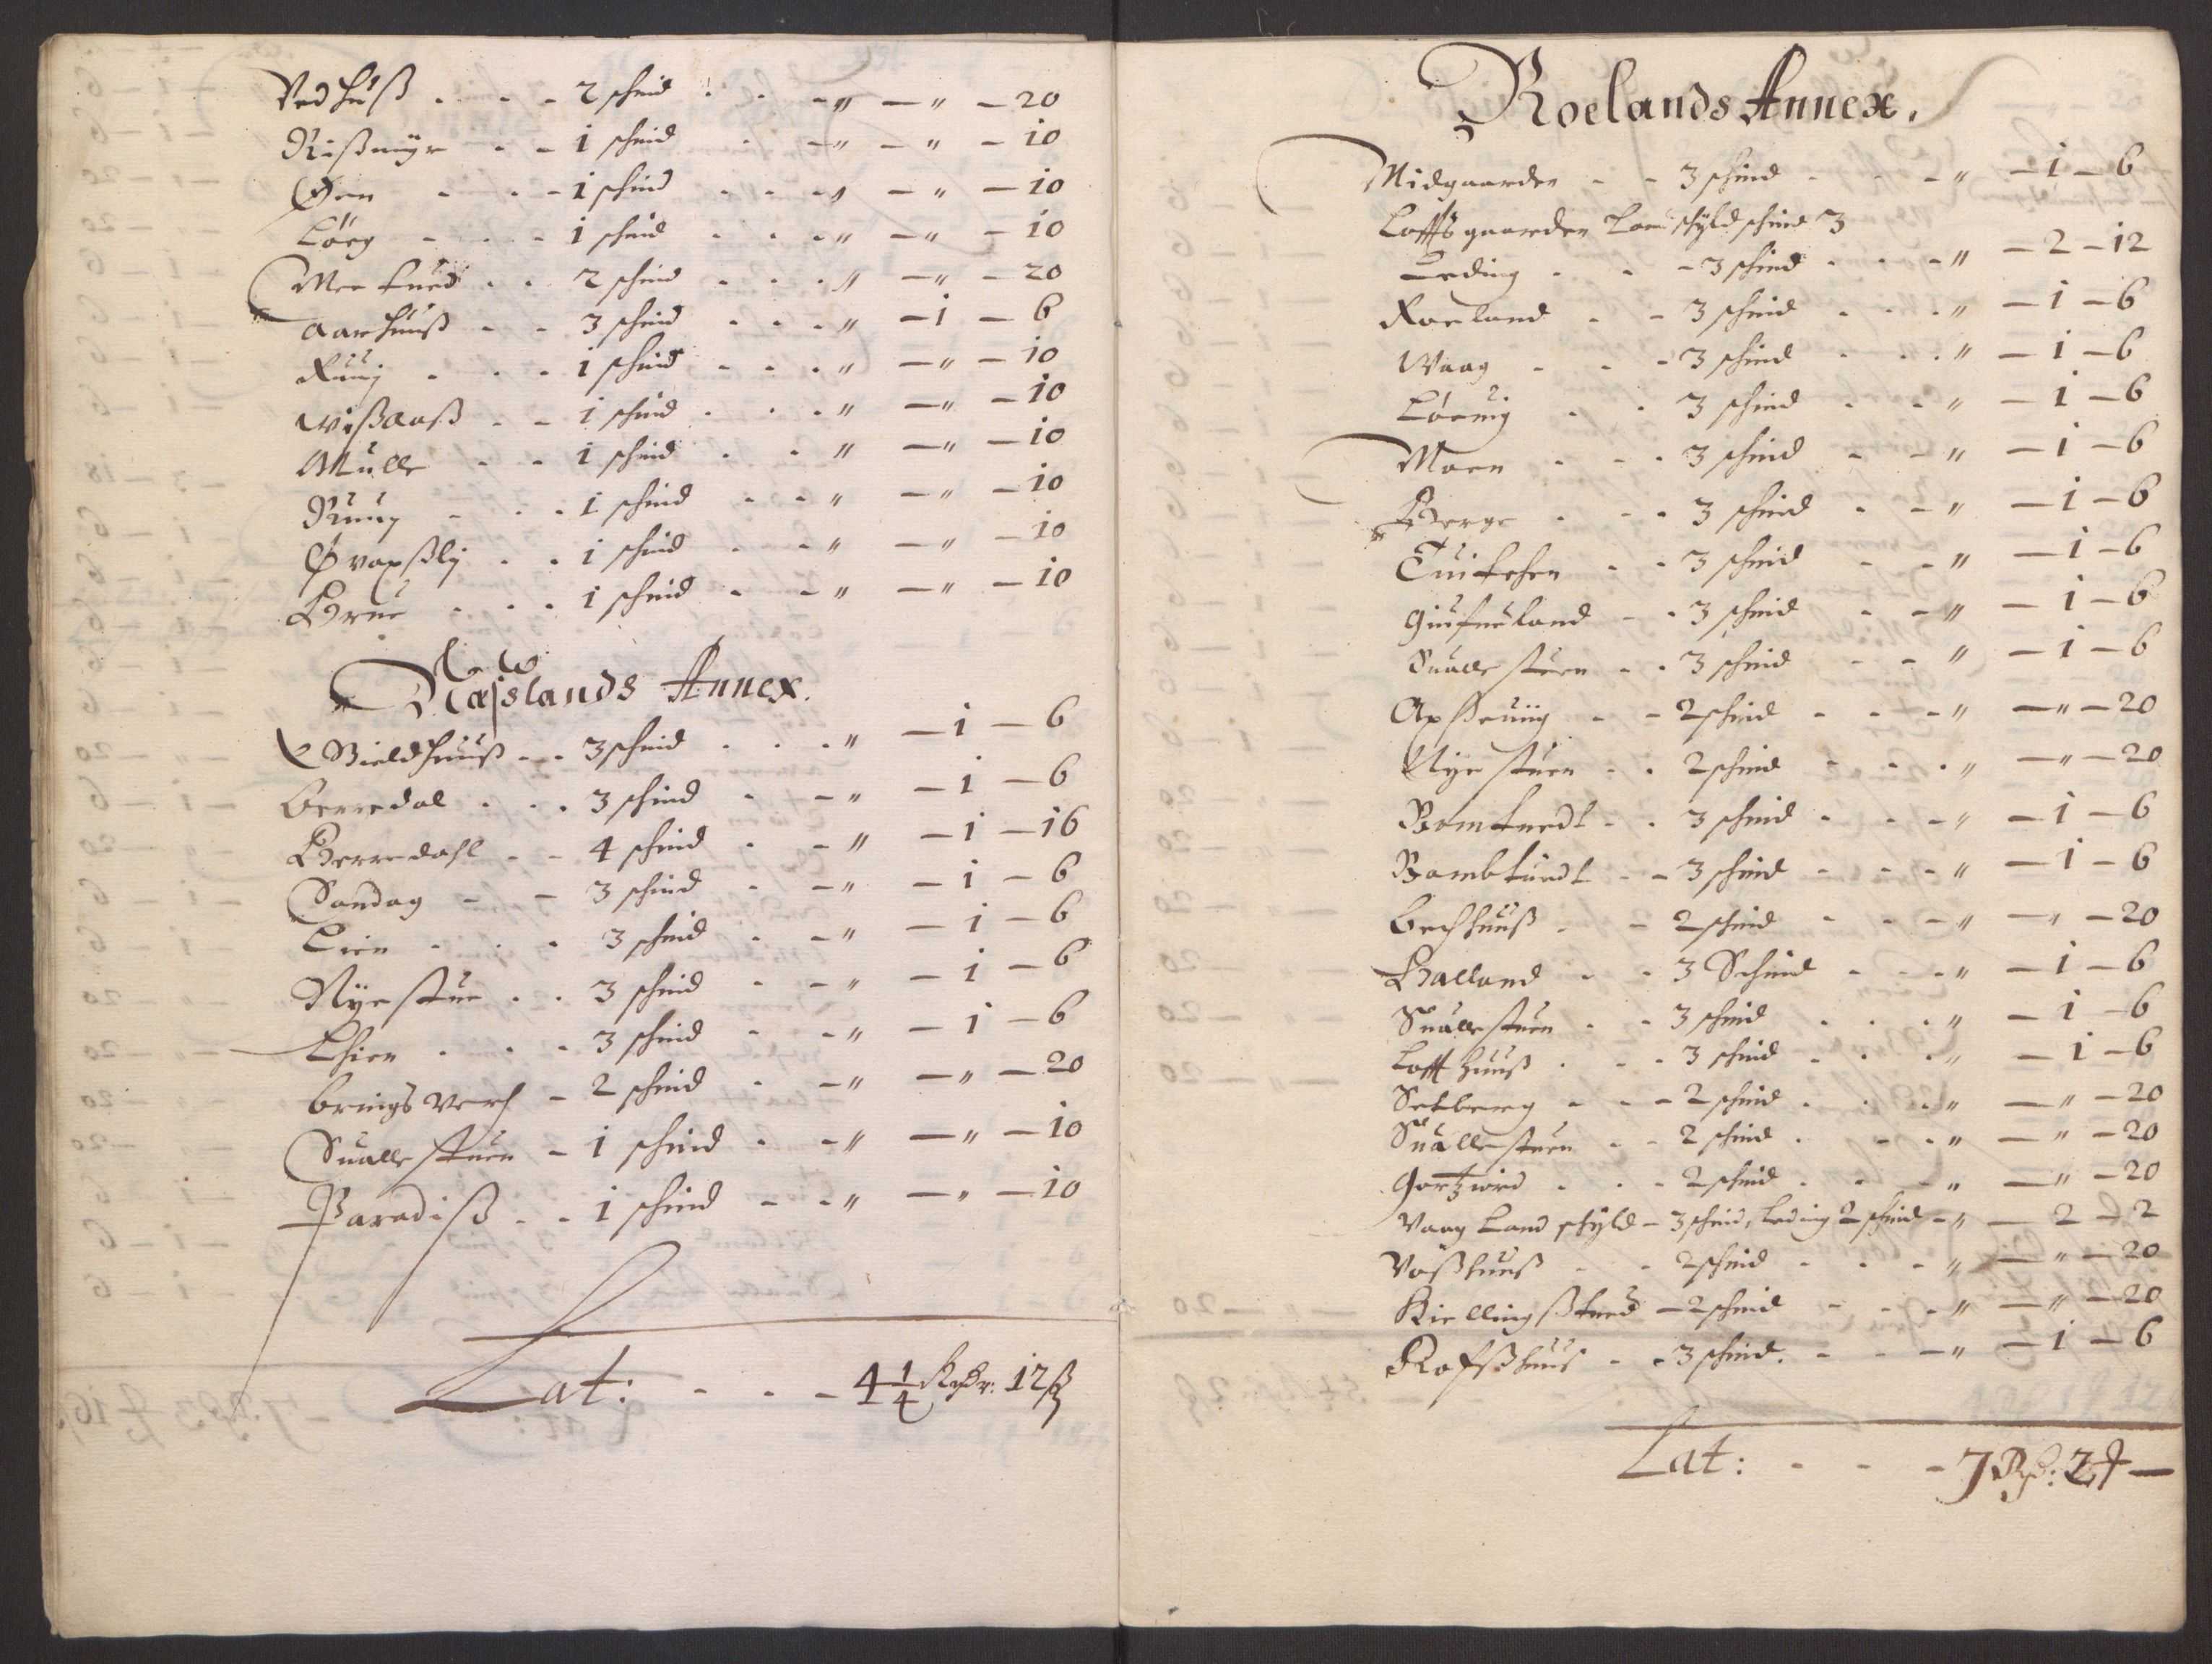 Vedhuß - - - 2 schind - - - " - " - 20
Rißmyr - - 1 schind - - " - " - 10
Øen - - - 1 schind - - - " - " - 10
Løeg - - - 1 schind - - - " - " - 10
Mretued - - 2 schind - - - " - " - 20
Aarhuuß - - 3 schind - - - " - 1 - 6
Ruuj - - - 1 schind - - - " - " - 10
Wißaaß - - 1 schind - - - " - " - 10
Mulle - - 1 schind - - " - " - 10
Ruuy - - - 1 schind - - " - " - 10
1 schind - - " - " - 10
Brue - - - 1 schind - - " - " - 10
Rajslands Annex.
Bieldhuuß - - 3 schind - - - " - 1 - 6
Berredal - - - 3 schind - - " - 1 - 6
Berredahl - - 4 schind - - " - 1 - 16
Sandag - - 3 schind - - " - 1 - 6
Lien - - - 3 schind - - " - 1 - 6
Nÿestue - - 3 schind - - " - 1 - 6
Lhien - - - 3 schind - - " - 1 - 6
bringsverch - 2 schind - - " - " - 20
Suallestuen - 1 schind - - " - " - 10
Paradiß - - 1 schind - - " - " - 10
Lat: - - - 4 1/4 Rxdr: 12 ß
Roelands Annex.
Midgaarden - - 3 schind - - - " - 1 - 6
Loffts gaarden Landschÿld schind 3
Leding - - - 3 schind - - - " - 2 - 12
Roeland - - 3 schind - - - " - 1 - 6
Waag - - - 3 schind - - - " - 1 - 6
Løenig - - 3 schind - - " - 1 - 6
Moen - - - 3 schind - - " - 1 - 6
Berge - - - 3 schind - - " - 1 - 6
Tuitehen - - 3 schind - - " - 1 - 6
Giufneland - - 3 schind - - " - 1 - 6
Suallestuen - - 3 schind - - " - 1 - 6
2 schind - - - " - " - 20
Nÿestuen - - 2 schind - - - " - " - 20
Bomtuedt - - 3 schind - - - " - 1 - 6
Bombtuedt - - 3 schind - - - " - 1 - 6
Bechhuuß - - 2 schind - - - " - " - 20
Halland - - 3 Schind - - - " - 1 - 6
Suallestuen - - 3 schind - - - " - 1 - 6
Loffthuuß - - - 3 schind - - - " - 1 - 6
Selberg - - - 2 schind - - - " - " - 20
Suallestuen - - 2 schind - - - " - " - 20
- - - 2 schind - - - " - " - 20
Vaag Landschÿld - 3 schind, Leding 2 schind - " - 2 - 2
Vaßhuuß - - 2 schind - - - " - " - 20
Kiellingßtued - 2 schind - - - " - " - 20
Rofßhuus - - 3 schind. - - - " - 1 - 6
Lat: - - - 7 Rxd: 2 ₰ -